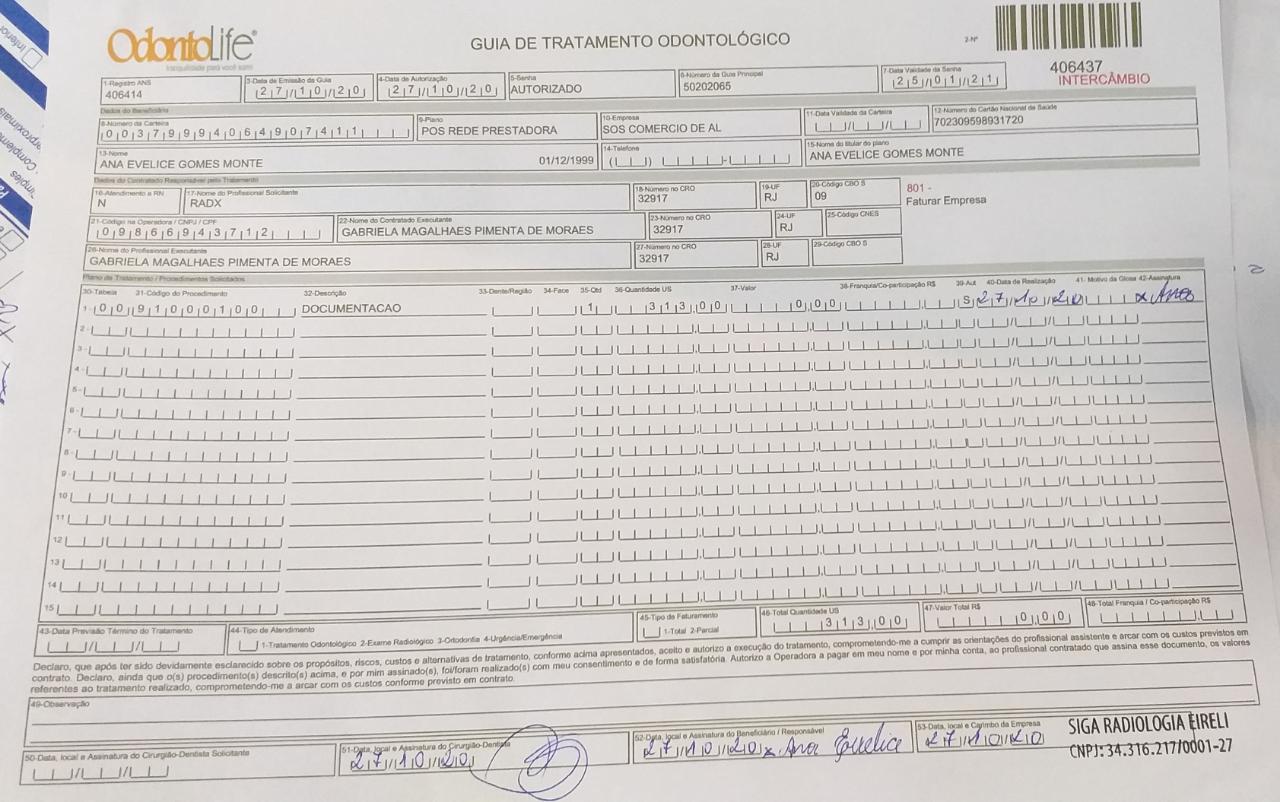 OdontoLife®
tranquilidade para você sorrir
GUIA DE TRATAMENTO ODONTOLÓGICO
2-Nº
406437
INTERCÂMBIO
1-Registro ANS
406414
3-Data de Emissão da Guia
27/10/20
4-Data de Autorização
27/10/20
5-Senha
AUTORIZADO
6-Número da Guia Principal
50202065
7-Data Validade da Senha
25/01/21
Dados do Beneficiário
8-Número da Carteira
00379994064907411
9-Plano
POS REDE PRESTADORA
10-Empresa
SOS COMERCIO DE AL
11-Data Validade da Carteira
12-Número do Cartão Nacional de Saúde
702309598931720
13-Nome
ANA EVELICE GOMES MONTE 01/12/1999
14-Telefone
15-Nome do titular do plano
ANA EVELICE GOMES MONTE
Dados do Contratado Responsável pelo Tratamento
16-Atendimento a RN
N
17-Nome do Profissional Solicitante
RADX
18-Número no CRO
32917
19-UF
RJ
20-Código CBO S
09
801 -
Faturar Empresa
21-Código na Operadora / CNPJ / CPF
09866943712
22-Nome do Contratado Executante
GABRIELA MAGALHAES PIMENTA DE MORAES
23-Número no CRO
32917
24-UF
RJ
25-Código CNES
26-Nome do Profissional Executante
GABRIELA MAGALHAES PIMENTA DE MORAES
27-Número no CRO
32917
28-UF
RJ
29-Código CBO S
Plano de Tratamento / Procedimentos Solicitados
30-Tabela 31-Código do Procedimento 32-Descrição 33-Dente/Região 34-Face 35-Qtd 36-Quantidade US 37-Valor 38-Franquia/Co-participação R$ 39-Aut 40-Data de Realização 41- Motivo da Glosa 42-Assinatura
1- 00 91000100 DOCUMENTACAO 1 313,00 0,00 S 27/10/20 x Ana
2-
3-
4-
5-
6-
7-
8-
9-
10
11
12
13
14
15
43-Data Previsão Término do Tratamento
44-Tipo de Atendimento
1-Tratamento Odontológico 2-Exame Radiológico 3-Ortodontia 4-Urgência/Emergência
45-Tipo de Faturamento
1-Total 2-Parcial
46-Total Quantidade US
313,00
47-Valor Total R$
0,00
48-Total Franquia / Co-participação R$
Declaro, que após ter sido devidamente esclarecido sobre os propósitos, riscos, custos e alternativas de tratamento, conforme acima apresentados, aceito e autorizo a execução do tratamento, comprometendo-me a cumprir as orientações do profissional assistente e arcar com os custos previstos em
contrato. Declaro, ainda que o(s) procedimento(s) descrito(s) acima, e por mim assinado(s), foi/foram realizado(s) com meu consentimento e de forma satisfatória. Autorizo a Operadora a pagar em meu nome e por minha conta, ao profissional contratado que assina esse documento, os valores
referentes ao tratamento realizado, comprometendo-me a arcar com os custos conforme previsto em contrato.
49-Observação
50-Data, local e Assinatura do Cirurgião-Dentista Solicitante
51-Data, local e Assinatura do Cirurgião-Dentista
27/10/20
52-Data, local e Assinatura do Beneficiário / Responsável
27/10/20 x Ana Evelice
53-Data, local e Carimbo da Empresa
27/10/20
SIGA RADIOLOGIA EIRELI
CNPJ: 34.316.217/0001-27